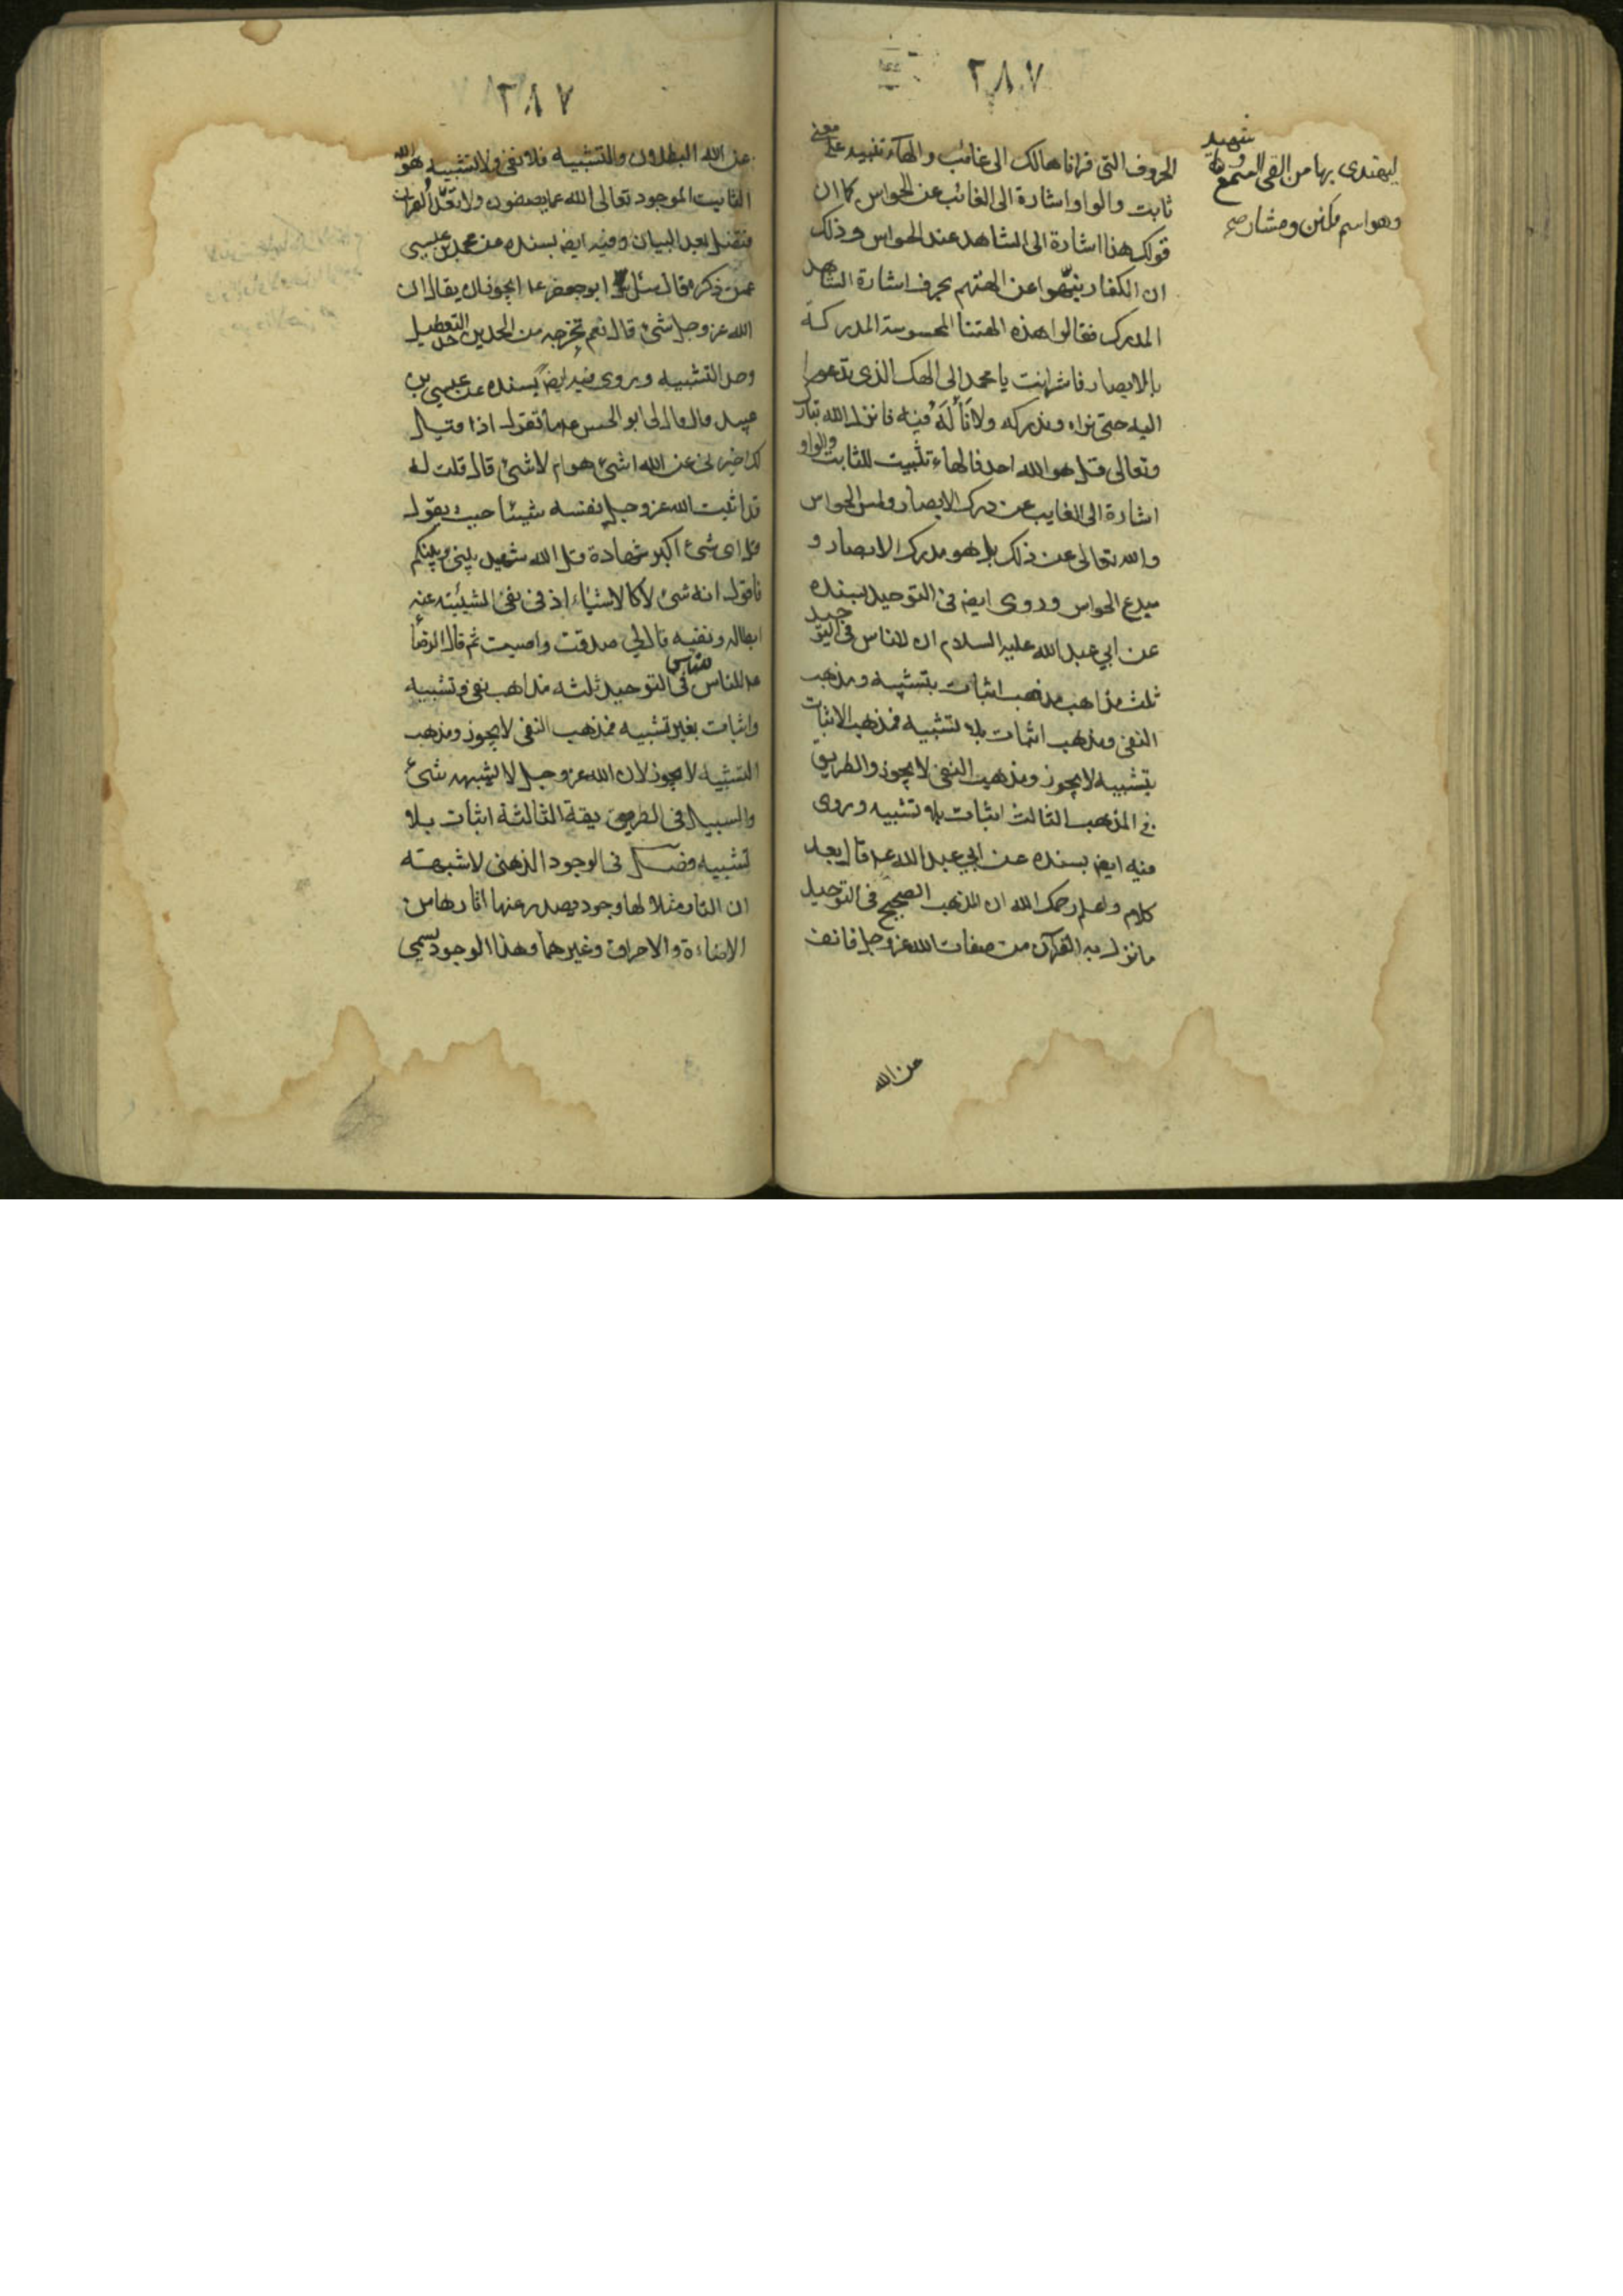 ٢٨٧
ليهتدى بها من القى السمع وهو
شهيد
وهو اسم مكنى ومشار صح
الحروف التى قرأناها لك الى غائب والهاء تنبيه على معنى
ثابت والواو اشارة الى الغائب عن الحواس كما ان
قولك هذا اشارة الى الشاهد عند الحواس وذلك
ان الكفار نبّهوا عن الهتهم بحرف اشارة الشاهد
المدرك فقالوا هذه الهتنا المحسوسة المدركة
بالابصار فاشر انت يا محمد الى الهك الذى تدعوا
اليه حتى نراه وندركه ولا نأله فيه فانزل الله تبارك
وتعالى قل هو الله احد فالهاء تثبيت للثابت والواو
اشارة الى الغايب عن درك الابصار ولمس الحواس
والله تعالى عن ذلك بل هو مدرك الابصار و
مبدع الحواس وروى ايض فى التوحيد بسنده
عن ابي عبد الله عليه السلام ان للناس فى التوحيد
ثلث مذاهب مذهب اثبات بتشبيه ومذهب
النفى ومذهب اثبات بلا تشبيه فمذهب الاثبات
بتشبيه لا يجوز ومذهب النفى لا يجوز والطريق
فى المذهب الثالث اثبات بلا تشبيه وروى
فيه ايض بسنده عن ابي عبد الله ع قال بعد
كلام واعلم رحمك الله ان المذهب الصحيح فى التوحيد
ما نزل به القرآن من صفات الله عز وجل فانف
عن الله
٢٨٧
عن الله البطلان والتشبيه فلا نفى ولا تشبيه هو الله
الثابت الموجود تعالى الله عما يصفون ولا تعدّ القران
فتضل بعد البيان وفيه ايض بسنده عن محمد بن عيسى
عمن ذكره قال سئل ابو جعفر ع ايجوز ان يقال ان
الله عز وجل شئ قال نعم تخرجه من الحدين حد التعطيل
وحد التشبيه ويروى فيه ايض بسنده عن عيسى بن
عبيد قال قال لى ابو الحسن ع ما تقول اذا قيل
لك اخبرنى عن الله اشئ هو ام لا شئ قال قلت له
قد اثبت الله عز وجل نفسه شيئا حيث يقول
قل اى شئ اكبر شهادة قل الله شهيد بينى وبينكم
فاقول انه شئ لا كالاشياء اذ فى نفى الشيئية عنه
ابطاله ونفيه قال لي صدقت واصبت ثم قال الرضا
ع للناس فى التوحيد ثلثه مذاهب نفى وتشبيه
واثبات بغير تشبيه فمذهب النفى لا يجوز ومذهب
التشبيه لا يجوز لان الله عز وجل لا يشبهه شئ
والسبيل فى الطريقة الثالثة اثبات بلا
تشبيه فصل فى الوجود الذهنى لا شبهة
ان النار مثلا لها وجود يصدر عنها اثارها من
الاضاءة والاحراق وغيرهما وهذا الوجود يسمى